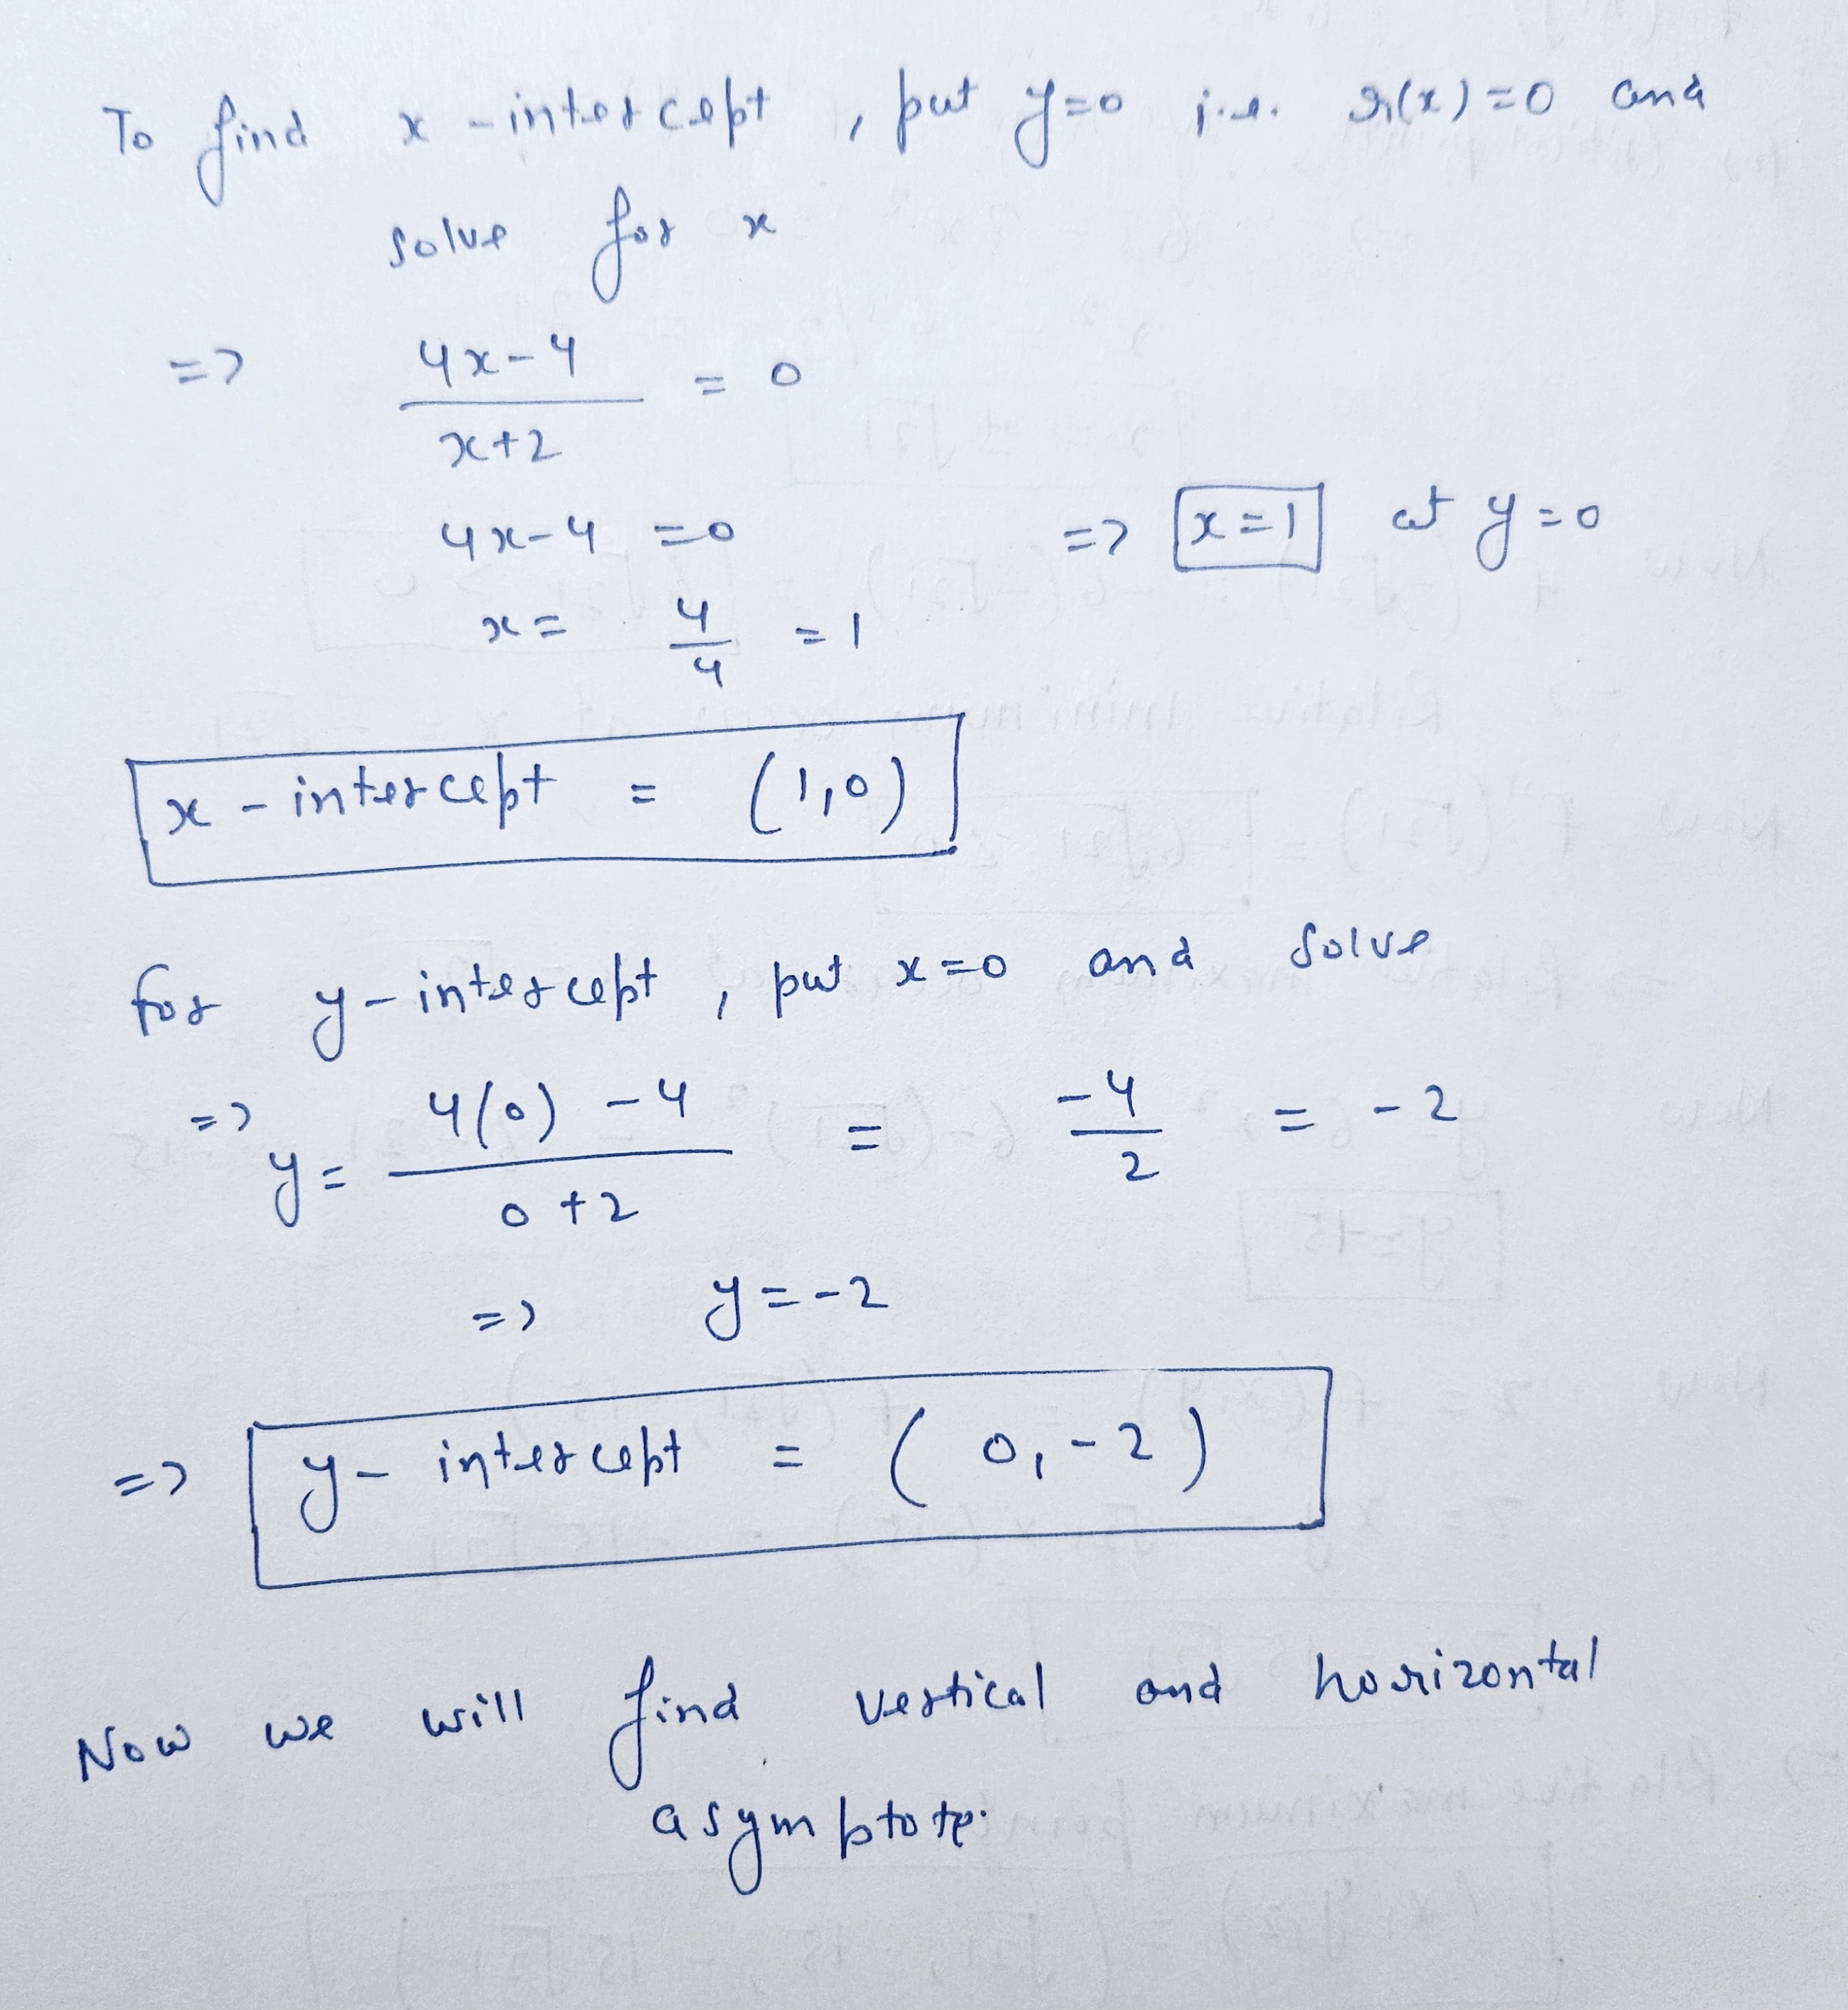 To find x-intercept, put y=0 i.e. r(x)=0 and
solve for x
=> 4x-4 / x+2 = 0
4x-4 =0 => x=1 at y=0
x= 4/4 =1
x-intercept = (1,0)
for y-intercept, put x=0 and solve
=> y= 4(0) -4 / 0+2 = -4/2 = -2
=> y=-2
=> y-intercept = (0,-2)
Now we will find vertical and horizontal
asymptote.